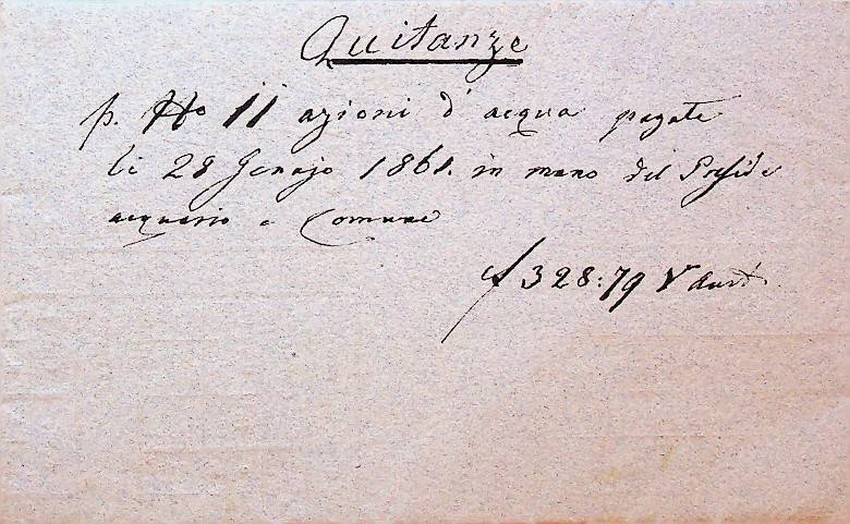 Quitanze
p. No 11 azioni d'acqua pagate
li 28 Genajo 1861. in mano del Preside
acquario e Comune
f 328:79 V aust.